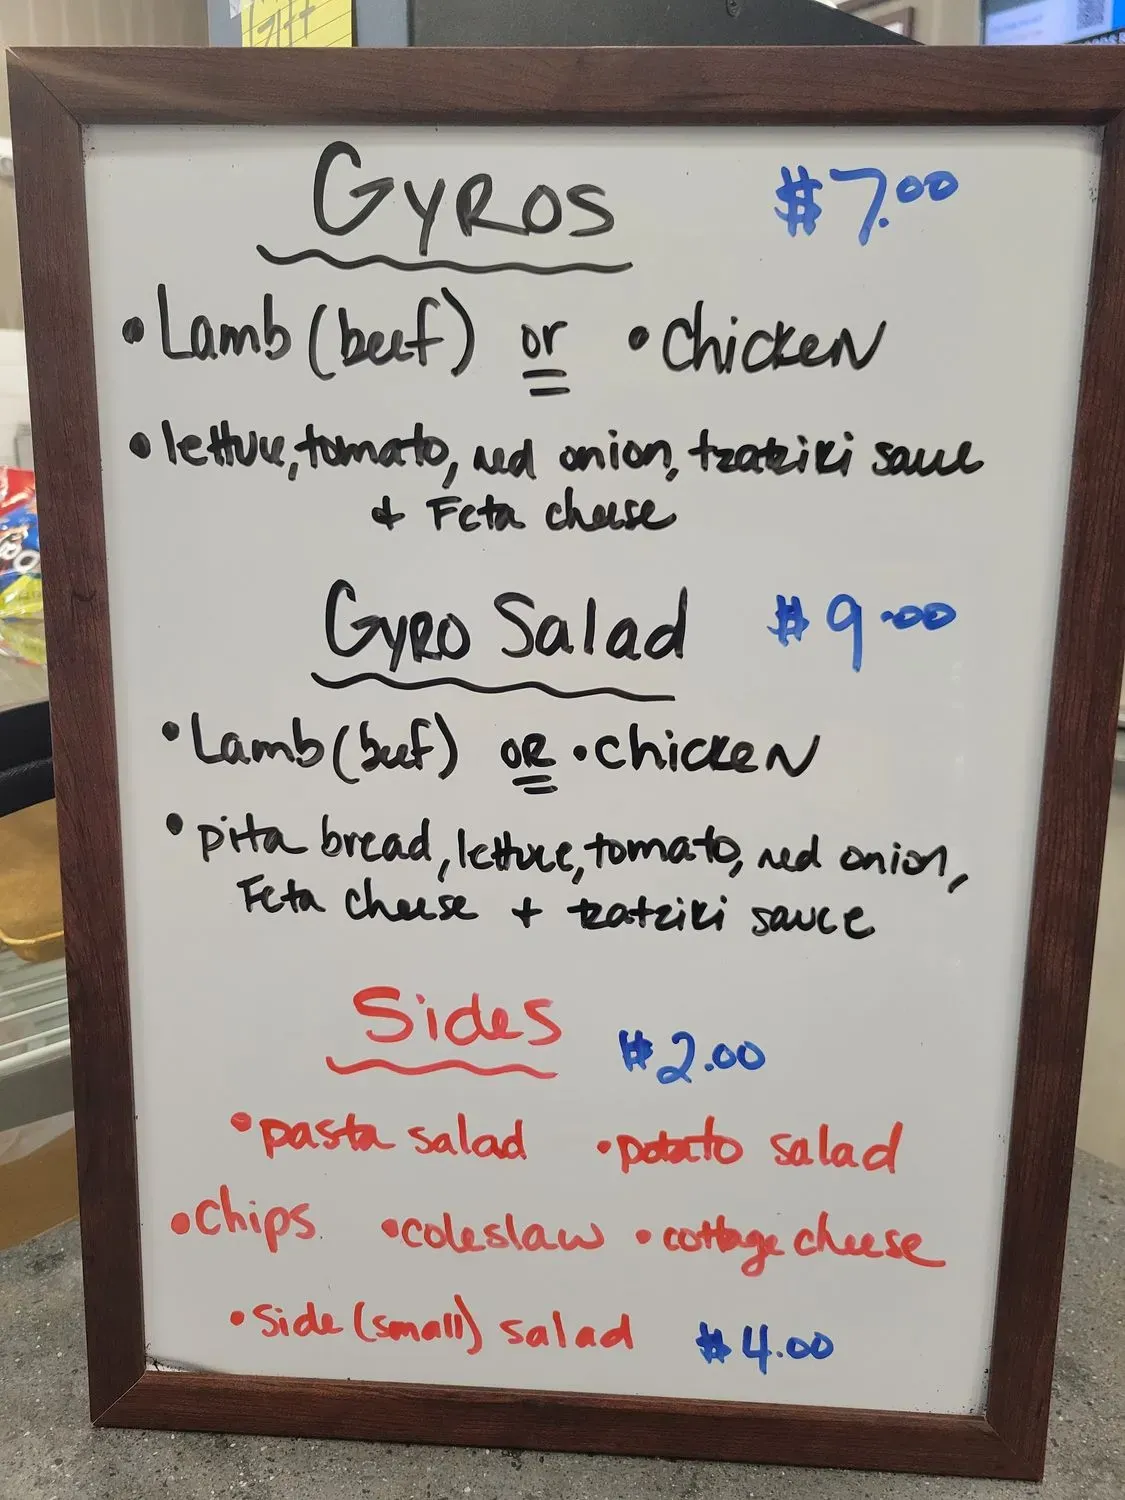 Gyros $7.00
• Lamb (beef) or • Chicken
• lettuce, tomato, red onion, tzatziki sauce
& Feta cheese
Gyro Salad $9.00
• Lamb (beef) OR • Chicken
• pita bread, lettuce, tomato, red onion,
Feta cheese + tzatziki sauce
Sides $2.00
• pasta salad • potato salad
• Chips • coleslaw • cottage cheese
• Side (small) salad $4.00